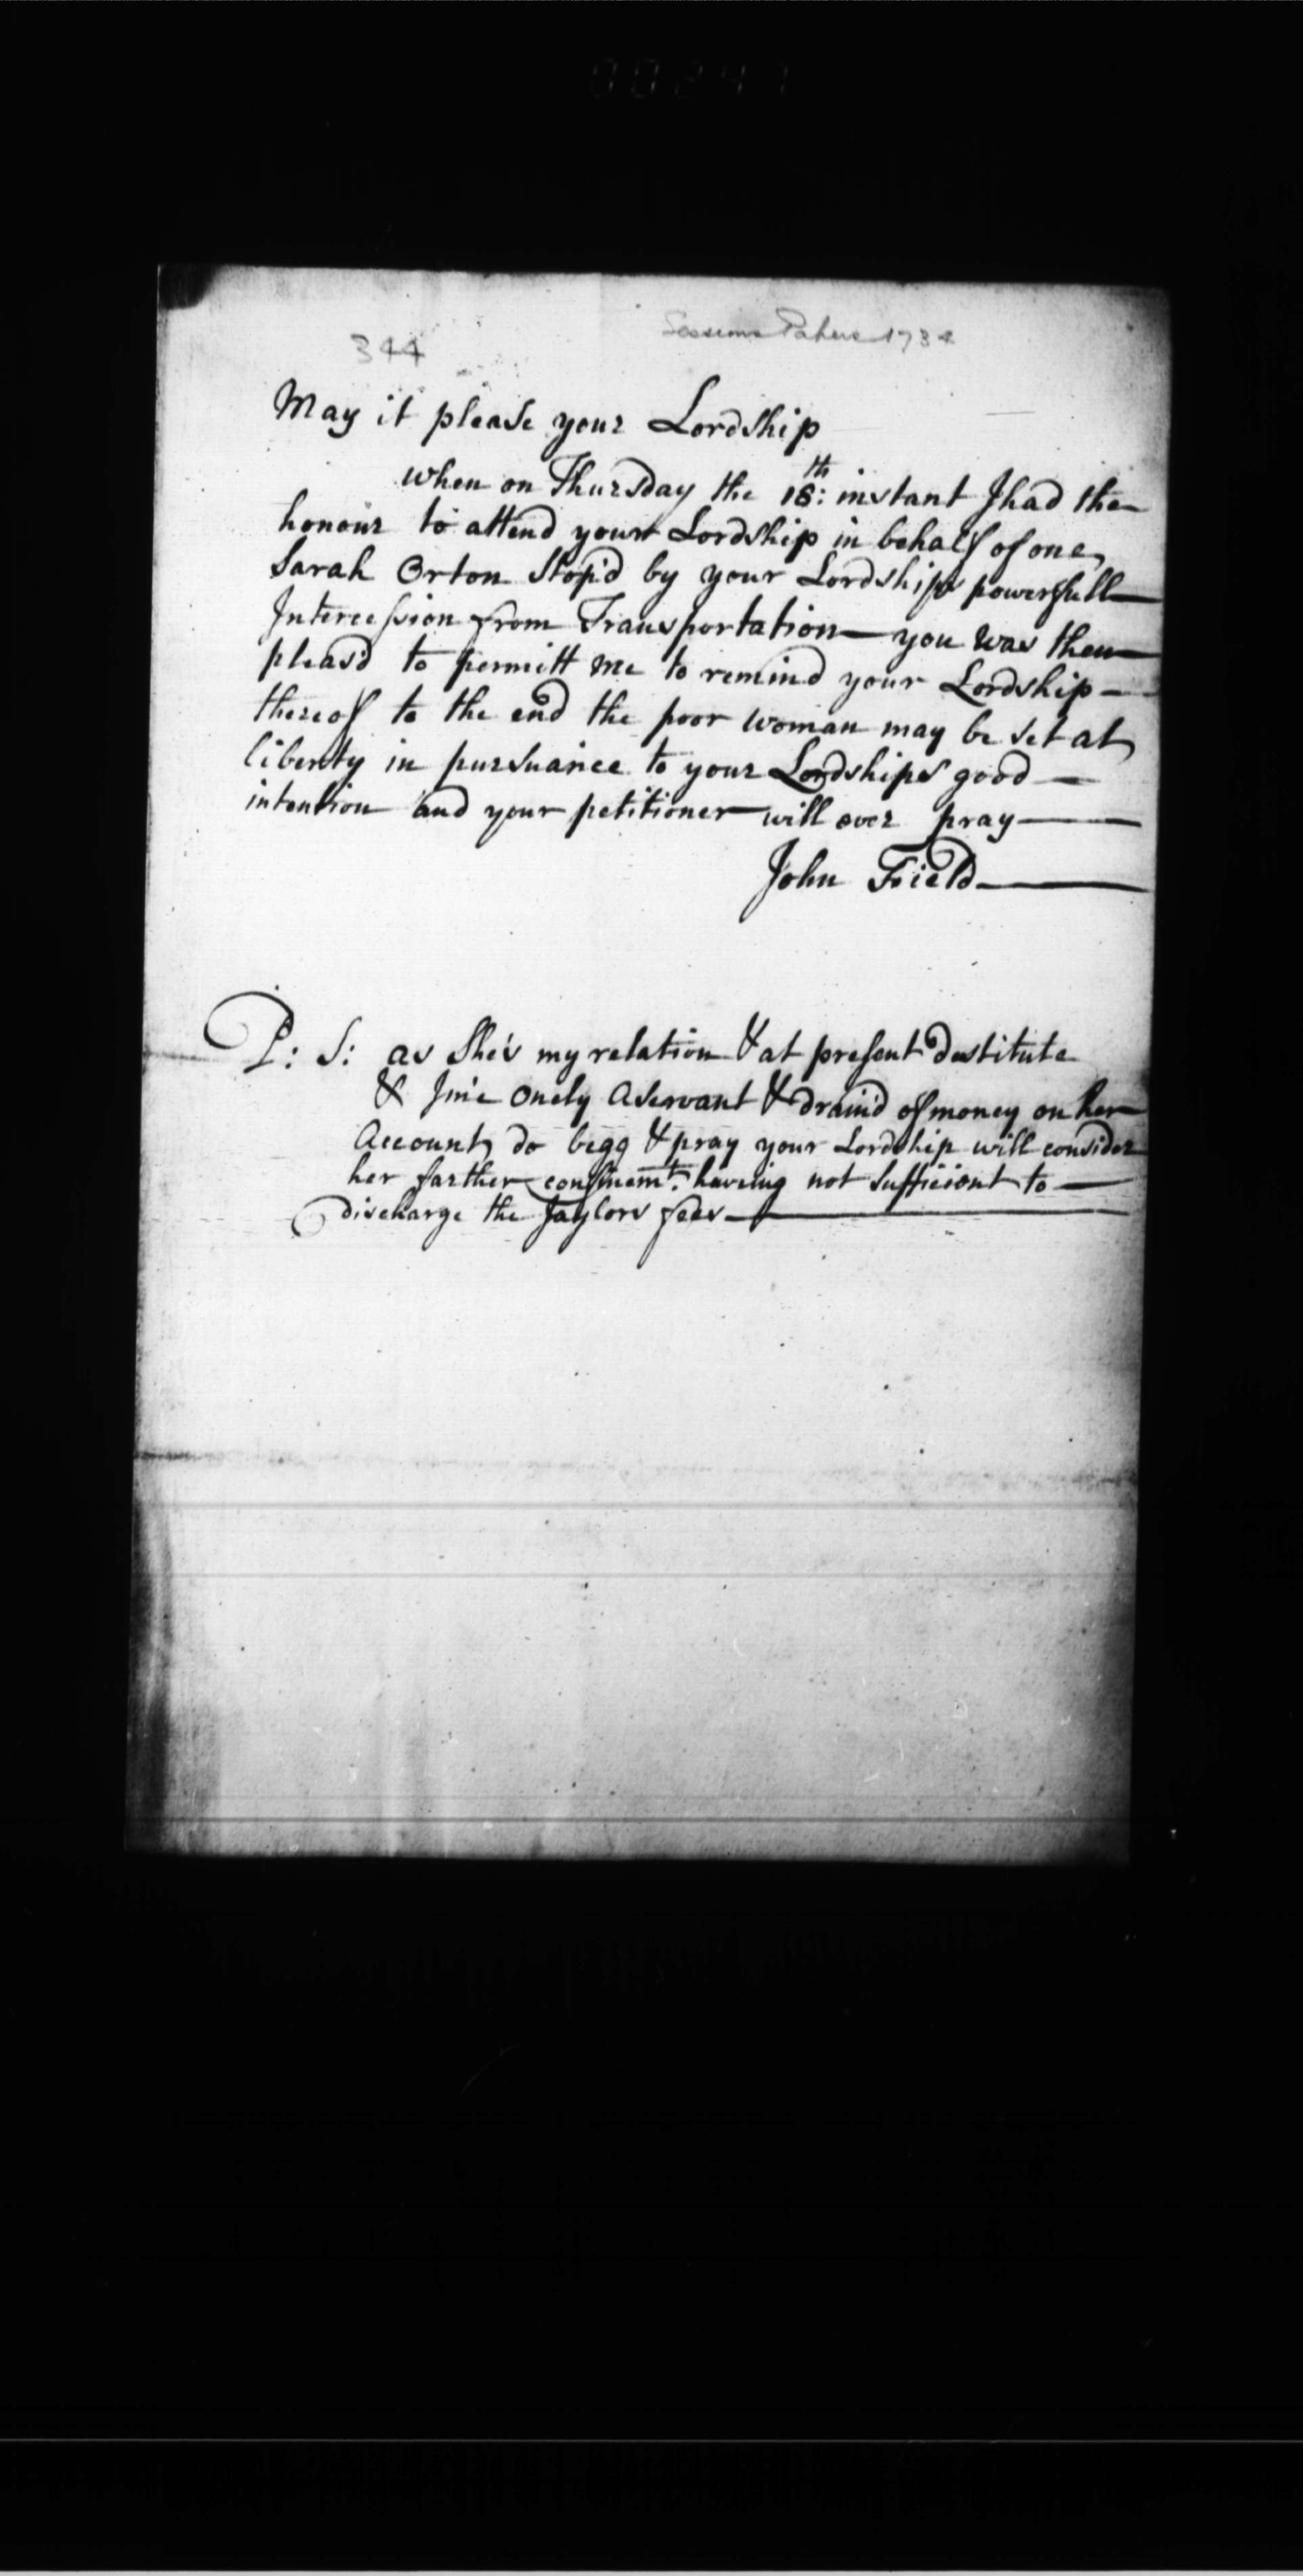 00247
344
Sessions Papers 1734
May it please your Lordship
when on Thursday the 18:th instant I had the
honour to attend your Lordship in behalf of one
Sarah Orton Stop'd by your Lordships powerfull
Intercession from Transportation — you was then
pleas'd to permitt me to remind your Lordship —
thereof to the end the poor woman may be set at
liberty in pursuance to your Lordships good —
intention and your petitioner will ever pray —
John Field —
P: S: as She's my relation & at present destitute
& I'me onely a Servant & drain'd of money on her
Account, do begg & pray your Lordship will consider
her farther confinemt. having not Sufficient to —
discharge the Jaylors fees —